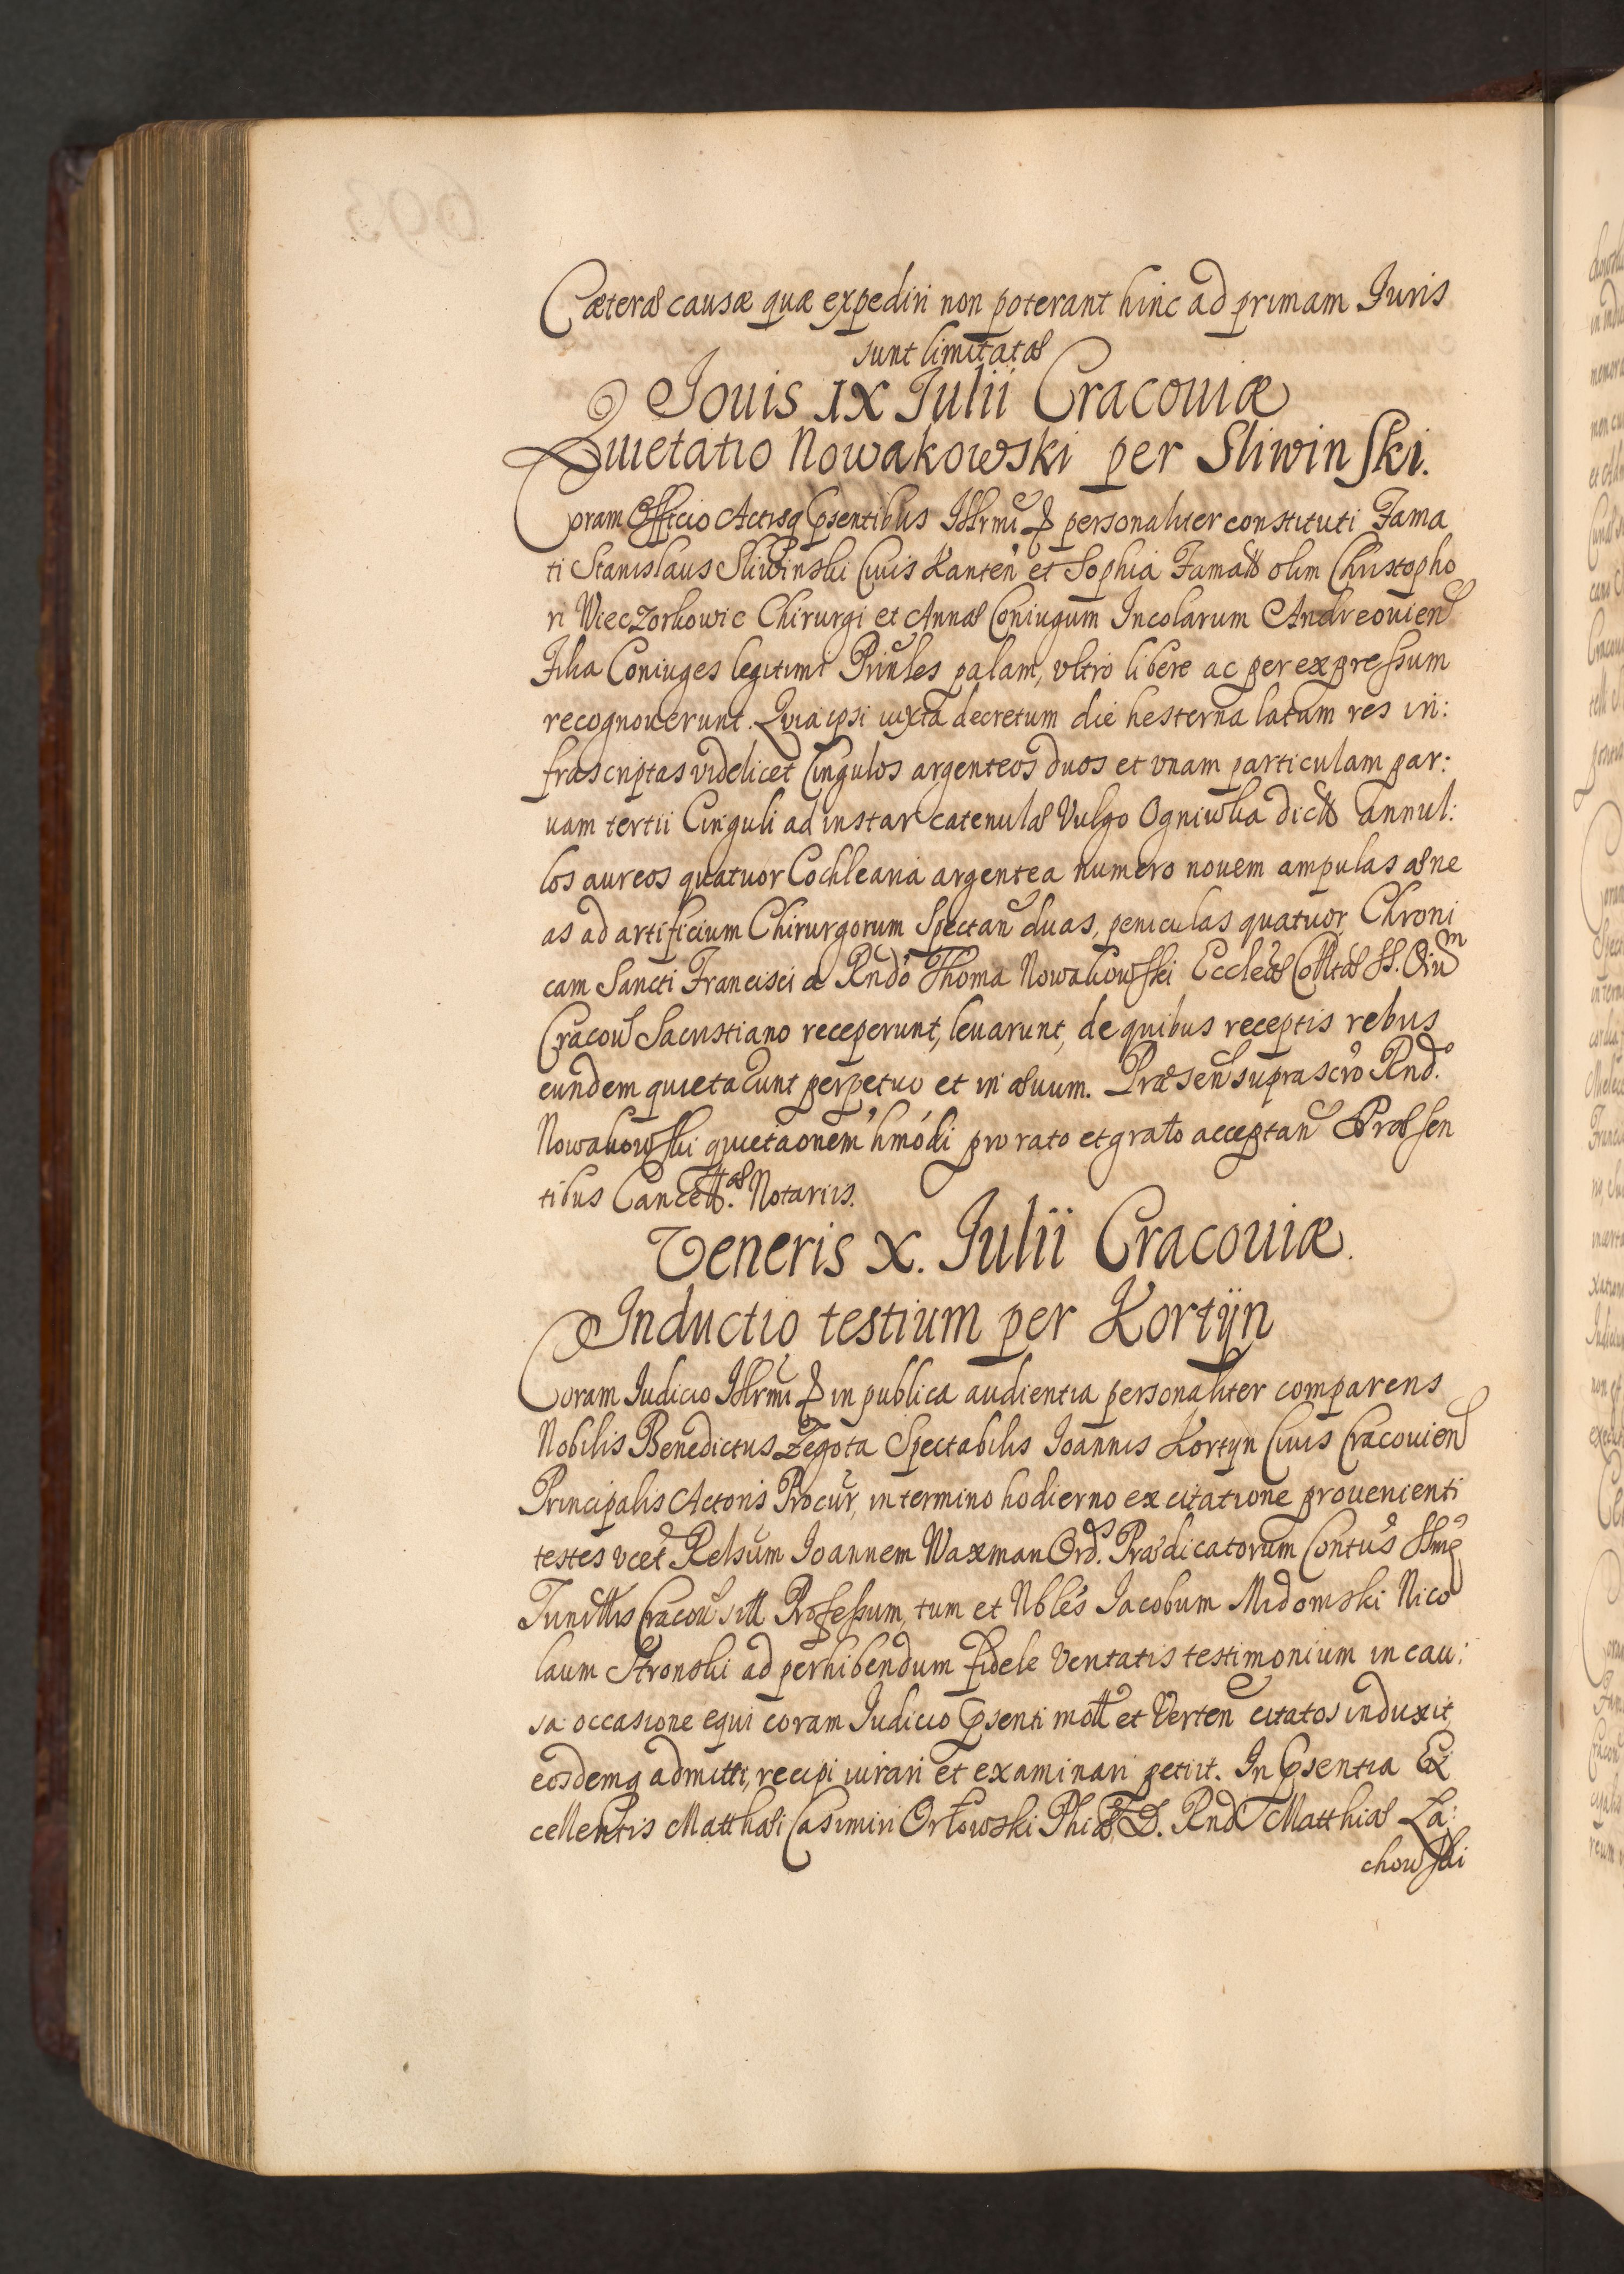 Cæteræ causæ quæ expediri non poterant hinc ad primam Iuris
sunt limitatæ
Iouis IX Iulii Cracouiæ
Quietatio Nowakowski per Sliwinski.
Coram Officio Actisq psentibus Illrmi personaliter constituti Fama
ti Stanislaus Sliwinski Ciuis Kanten et Sophia Famati olim Christopho
ri Wieczorkowic Chirurgi et Annæ Coniugum Incolarum Andreouien
Filia Coniuges legitimi Prinles palam, vltro libere ac per expressum
recognouerunt. Quia ipsi iuxta decretum die hesterna latum res in:
frascriptas videlicet Cingulos argenteos duos et vnam particulam par:
uam tertii Cinguli ad instar catenulæ Vulgo Ogniwka dict annul:
los aureos quatuor Cochlearia argentea numero nouem ampulas æne
as ad artificium Chirurgorum Spectan duas, peniculas quatuor, Chroni
cam Sancti Francisci a Rndo Thoma Nowakowski Eccleæ Colltæ SS. Oium
Cracou Sacristiano receperunt, leuarunt, de quibus receptis rebus
eundem quietarunt perpetuo et in æuum. Præsen suprascro Rndo.
Nowakowski quietaonem hmodi pro rato et grato acceptan Præsen
tibus Cancell.æ Notariis.
Veneris X. Iulii Cracouiæ.
Inductio testium per Kortyn
Coram Iudicio Illrmi in publica audientia personaliter comparens
Nobilis Benedictus Zegota Spectabilis Ioannis Kortyn Ciuis Cracouien
Principalis Actoris Procur, in termino hodierno ex citatione prouenienti
testes vcet Relsum Ioannem Waxman Ord. Prædicatorum Contus
Cracou Professum, tum et Nbles Iacobum Midomski Nico
laum Stronski ad perhibendum fidele Veritatis testimonium in cau:
sa occasione equi coram Iudicio psenti mott et Verten citatos induxit,
eosdemq admitti, recipi iurari et examinari petiit. In psentia Ex
cellentis Matthæi Casimiri Orłowski Phiæ D. Rnd Matthiæ Ła:
chowski